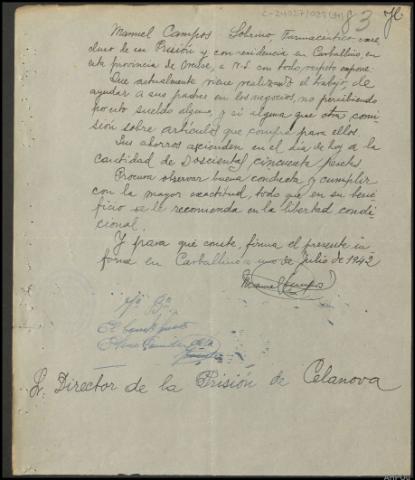 83
Manuel Campos Sobrino, Farmacéutico
cluso de su Prisión y con residencia en Carballino, en
esta provincia de Orense, a V.S con todo respeto expone:
Que actualmente viene realizando el trabajo, de
ayudar a sus padres en los negocios, no percibiendo
por esto sueldo alguno, y si alguna que otra comi
sión sobre artículos que compra para ellos.
Sus ahorros ascienden en el día de hoy a la
cantidad de Doscientas, cincuenta pesetas
Procura observar buena conducta y cumplir
con la mayor exactitud, todo que en su bene
ficio se le recomienda en la libertad condi
cional.
Y para que conste, firma el presente in
forme en Carballino a uno de Julio de 1942
Manuel Campos
Vº Bº
Sr. Director de la Prisión de Celanova